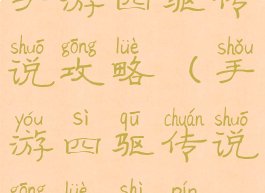 手游四驱传
shuō gōng lüè shǒu
说攻略（手
yóu sì qū chuán shuō
游四驱传说
gōng lüè shì pín